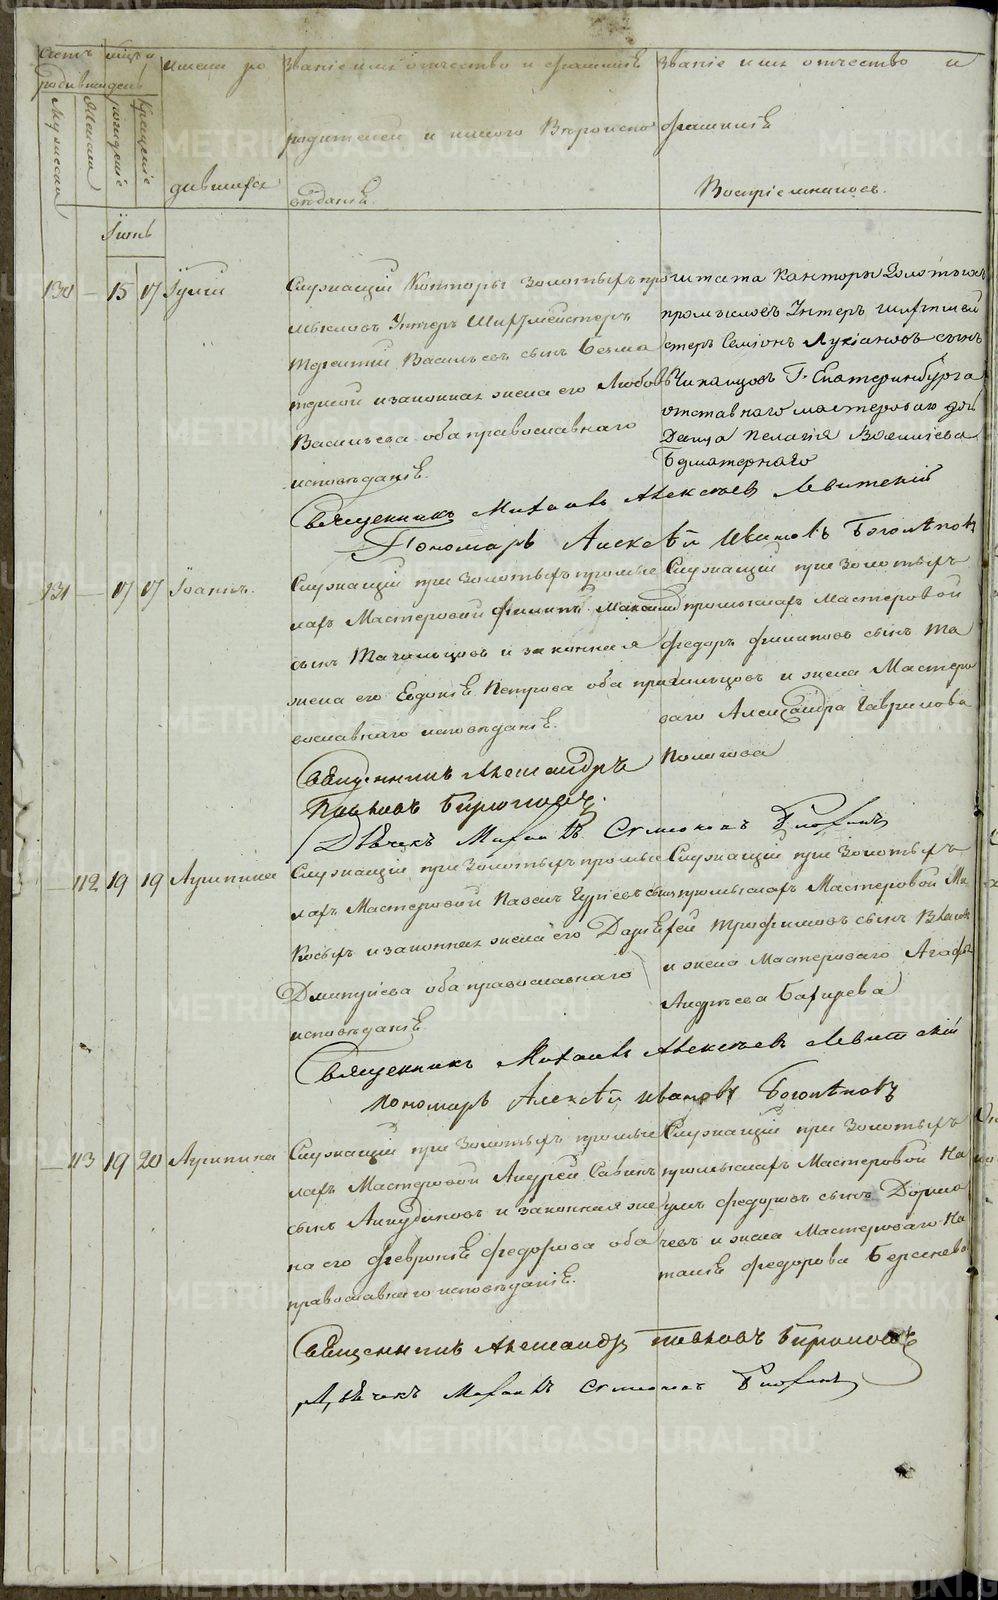 Счетъ
родившихся
Мужеска
Женска
Мѣсяцъ и
день
рожденіе
крещеніе
имена ро
дившихся
Званіе имя отчество и фамиліѣ
родителей и какого Вѣроиспо
вѣданіѣ.
Званіе имя отчество и
фамиліѣ
Воспріемниковъ.
Іюнь
130 — 15 17 Іулій
Служащій Конторы Золотыхъ про
мысловъ Унтеръ Шихтмейстеръ
Терентій Васильевъ сынъ Безма
терной и законная жена его Любовь
Васильева оба православнаго
исповѣданіѣ.
штата Канторы Золотыхъ
промысловъ Унтеръ шихтмей
стеръ Семіонъ Лукіановъ сынъ
Чиканцовъ Г. Екатеринбурга
отставнаго мастероваго до
Девица Пелагія Васильева
Безматернаго
Священникъ Михаилъ Алексѣевъ Левитскій
Пономарь Алексѣй Ивановъ Боголѣповъ
131 — 17 17 Іоаннъ.
Служащій при Золотыхъ промыс
лахъ Мастеровой Филипъ
сынъ Тагильцовъ и законная
жена его Евдокіѣ Петрова оба пра
вославнаго исповѣданіѣ.
Служащій при Золотыхъ
промыслахъ Мастеровой
федоръ филиповъ сынъ Та
гильцовъ и жена Мастеро
ваго Александра Гаврилова
Священникъ Александръ
Павловъ Бирюковъ.
Дьячекъ Михаилъ
— 112 19 19 Агрипина
Служащій при Золотыхъ промыс
лахъ Мастеровой Павелъ Гурьевъ сынъ
Косыхъ и законная жена его Даріѣ
Дмитріева оба православнаго
исповѣданіѣ
Служащій при Золотыхъ
промыслахъ Мастеровой Ма
фей Трофимовъ сынъ Власовъ
и жена Мастероваго Агафь
Андреева Бахирева
Священникъ Михаилъ Алексѣевъ Левитскій
Пономарь Алексѣй Ивановъ Боголѣповъ
— 113 19 20 Агрипина
Служащій при Золотыхъ промыс
лахъ Мастеровой Андрей Савинъ
сынъ Анкудиновъ и законная же
на его февроніѣ федорова оба
православнаго исповѣданіѣ.
Служащій при Золотыхъ
промыслахъ Мастеровой На
умъ федоровъ сынъ Дорма
чевъ и жена Мастероваго На
таліѣ федорова Берсенева
Священникъ Александръ Павловъ Бирюковъ
Дьячекъ Михаилъ
METRIKI.GASO-URAL.RU